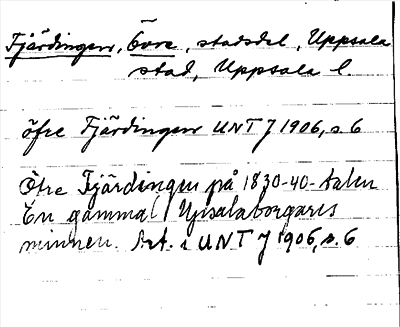 Fjärdingen, Övre, stadsdel, Uppsala
stad, Uppsala l.
öfre Fjärdingen UNT J 1906, s. 6
Öfre Fjärdingen på 1830-40-talen
En gammal Upsalaborgares
minnen. Art. i UNT J 1906, s. 6